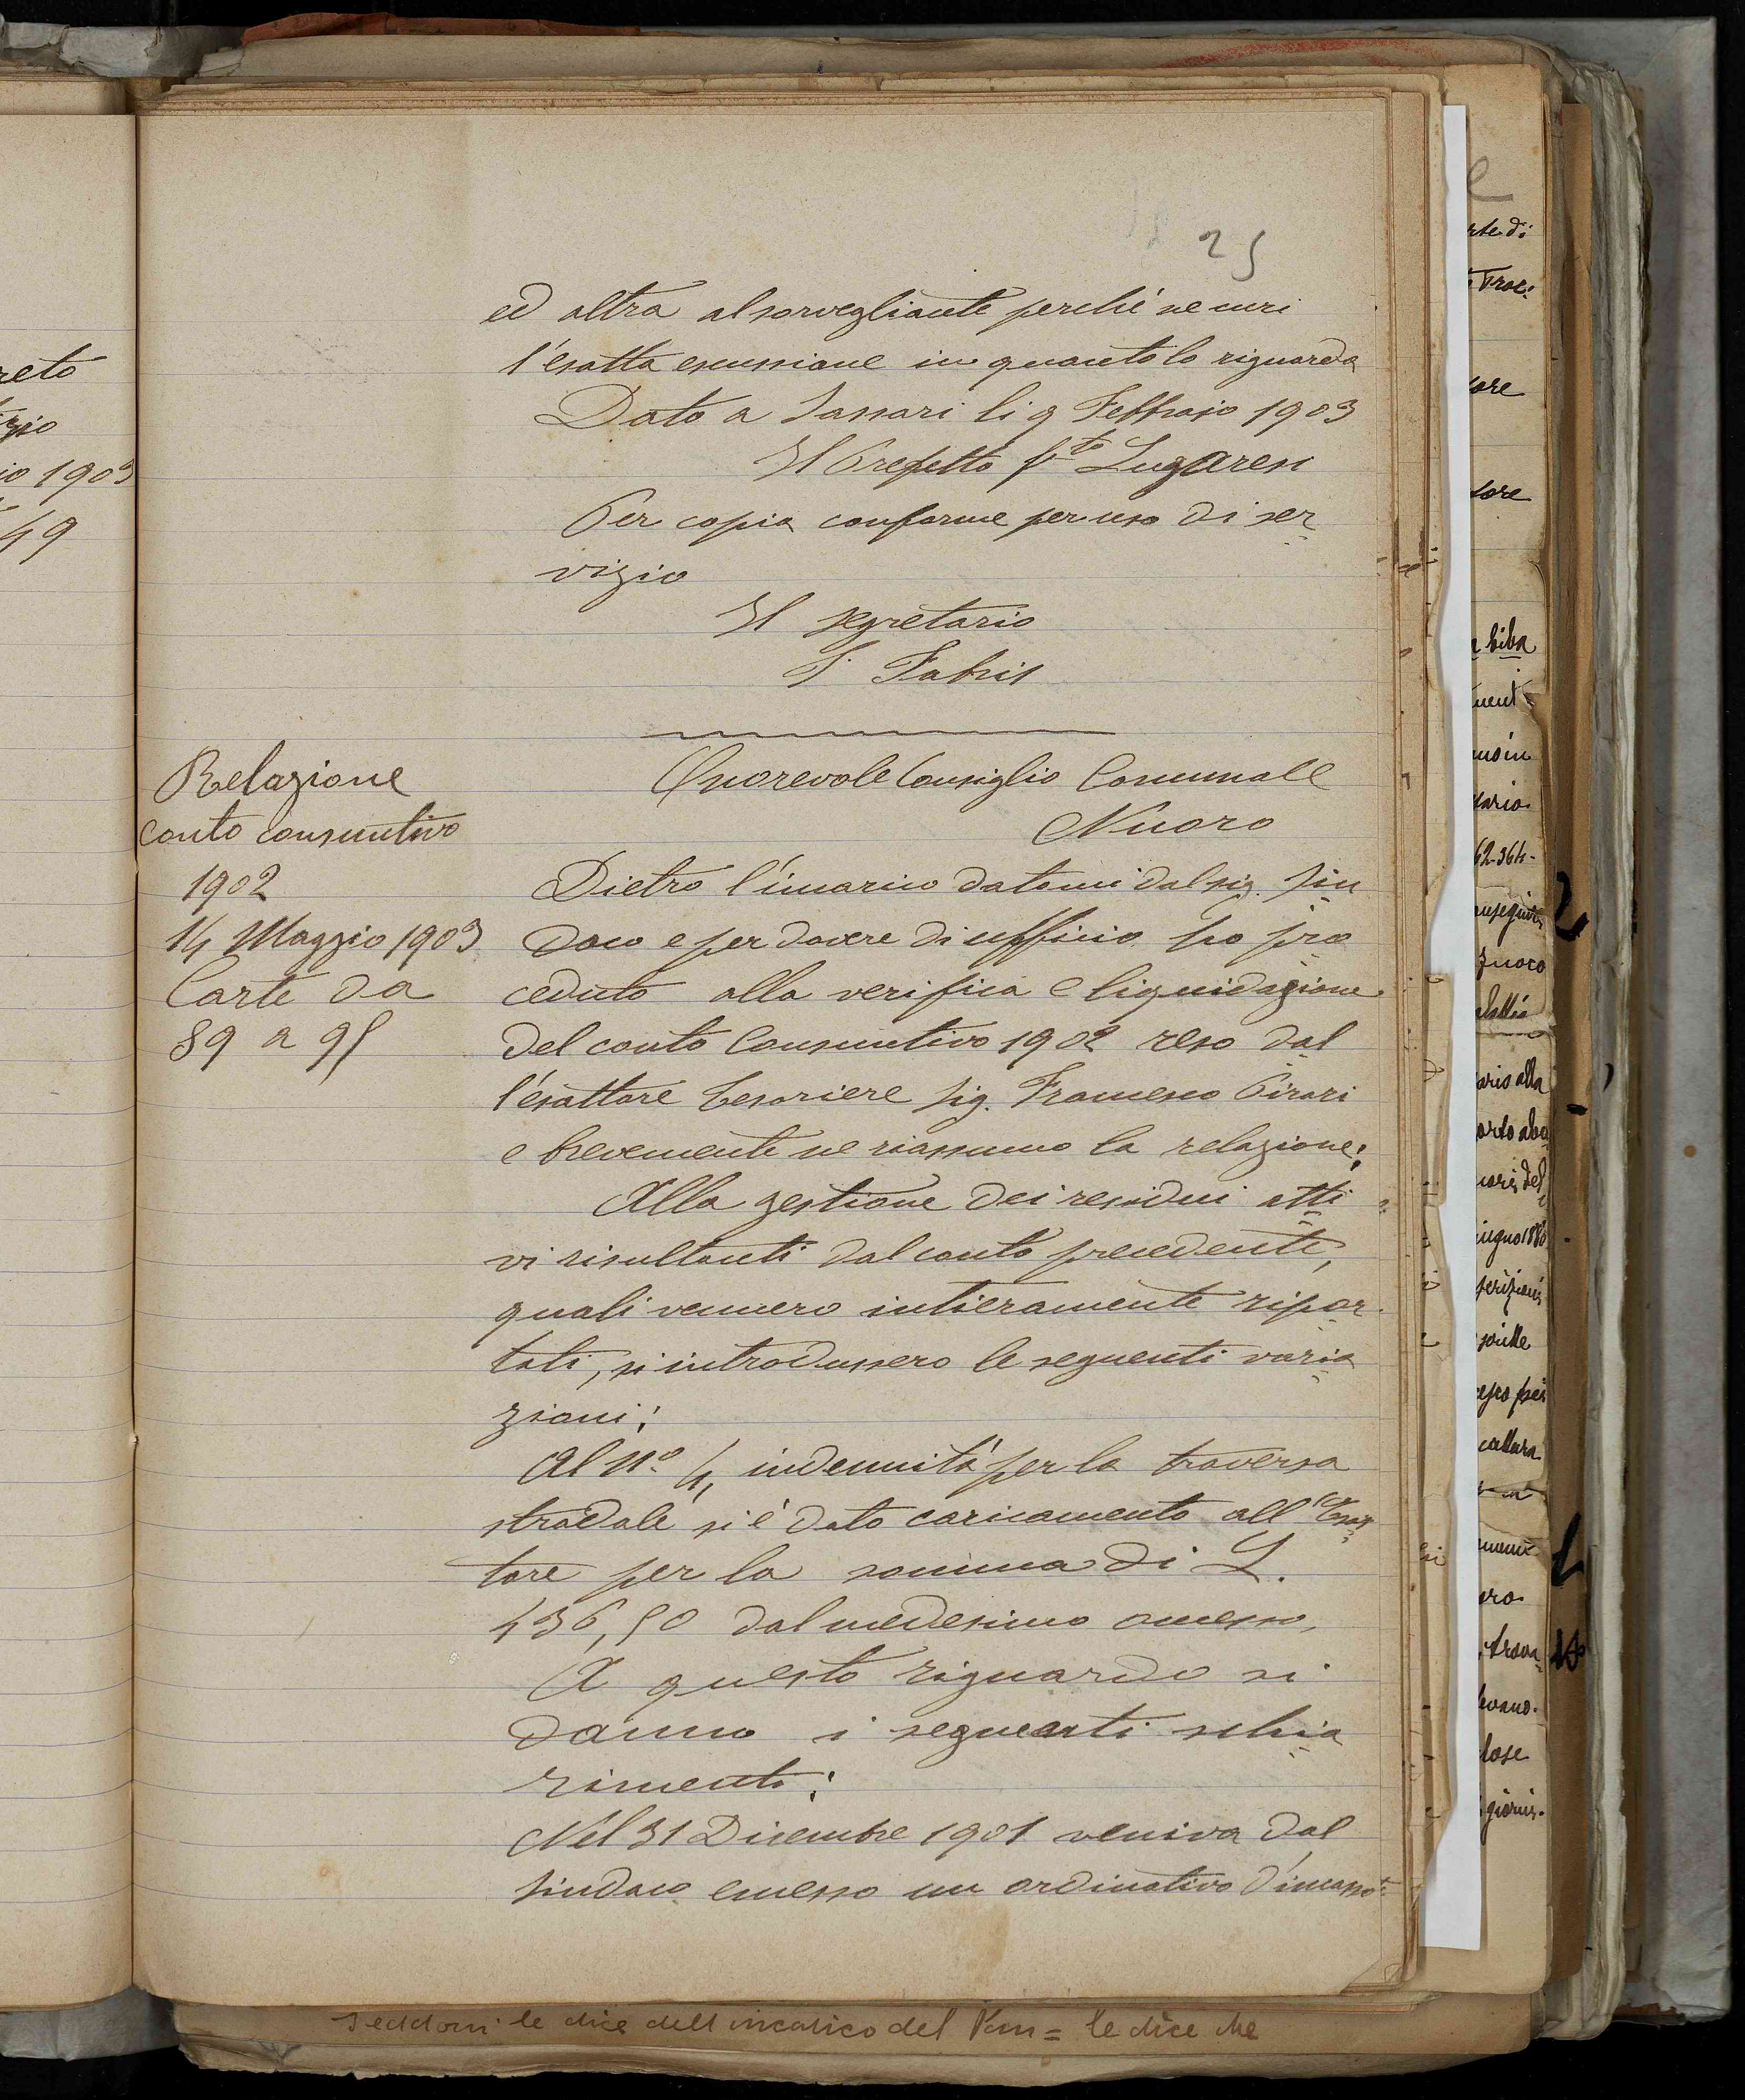 25
ed altra al sorvegliante perché ne curi
l'esatta escussione in quanto lo riguarda
Dato a Sassari li 9 Febbraio 1903
Il Prefetto f.to Lugaresi
Per copia conforme per uso di ser
vizio
Il segretario
F. Fabris
Relazione
conto consuntivo
1902
14 Maggio 1903
Carte da
89 a 95
Onorevole Consiglio Comunale
Nuoro
Dietro l'incarico datomi dal sig. Sin
daco e per dovere di ufficio ho pro
ceduto alla verifica e liquidazione
del conto Consuntivo 1902 reso dal
l'esattore Tesoriere Sig. Francesco Pirari
e brevemente ne riassumo la relazione:
Alla gestione dei residui atti
vi risultanti dal conto precedente,
quali vennero intieramente ripor
tati, si introdussero le seguenti varia
zioni:
Al N.º 4, indennità per la traversa
stradale si è dato caricamento all'Esat
tore per la somma di L.
436,50 dal medesimo omesso.
A questo riguardo si
danno i seguenti schia
rimenti:
Nel 31 Dicembre 1901 veniva dal
Sindaco emesso un ordinativo d'incasso
reto
io 1903
49
le dice dell'incarico del = le dice che